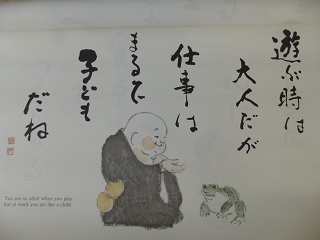 遊ぶ時は
大人だが
仕事は
まるで
子ども
だね
You act as adult when you play,
but at work you act like a child.